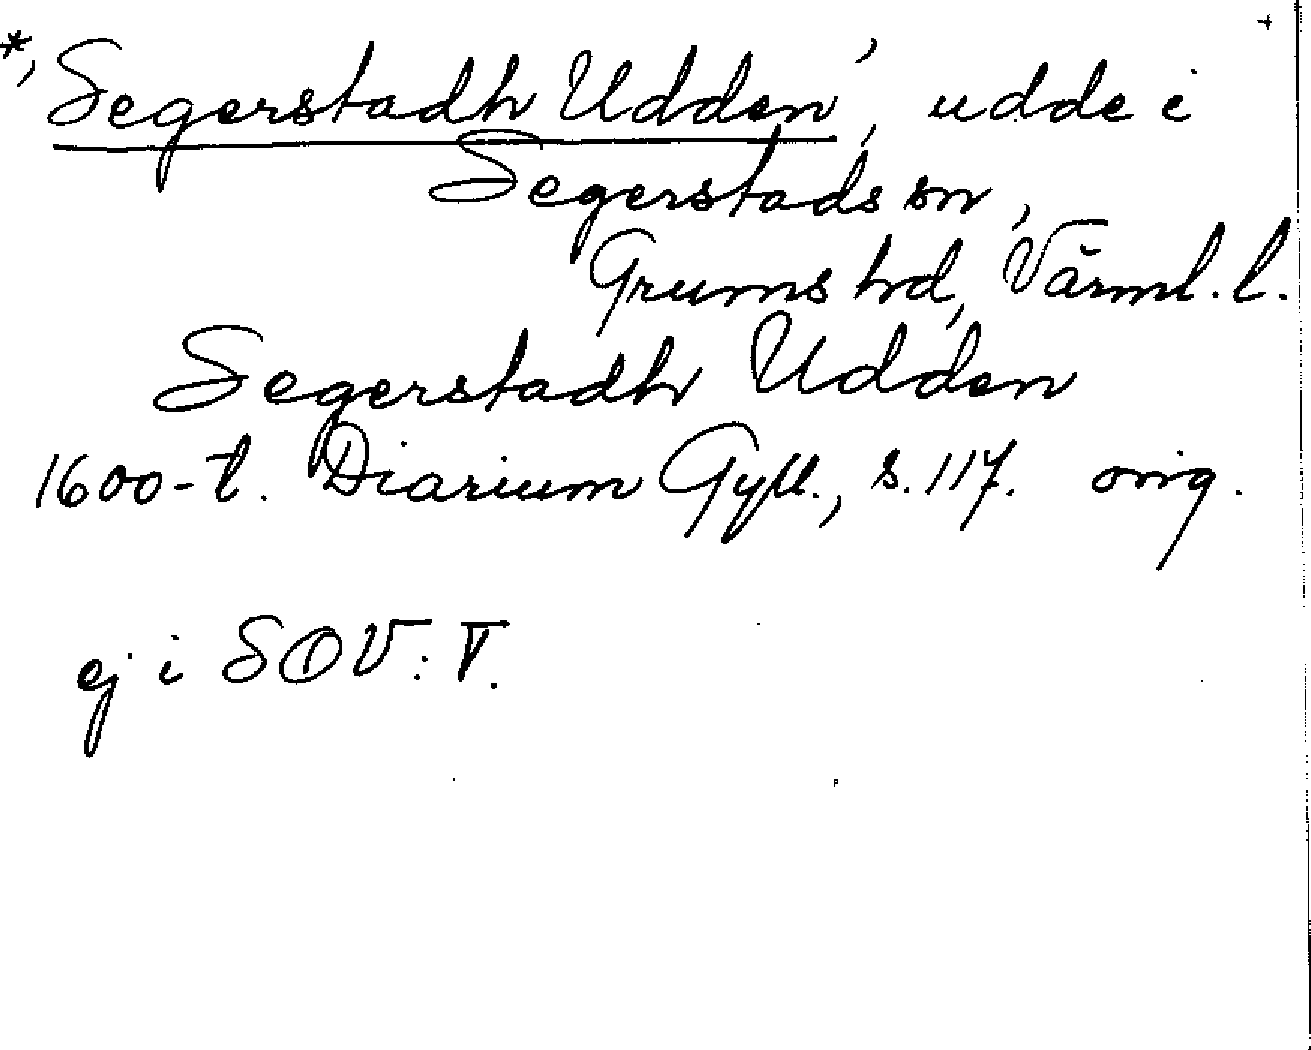 *'Segerstadh Udden', udde i
Segerstads sn,
Grums hd, Värml. l.
Segerstadh Udden
1600-t. Diarium Gyll., s. 117. orig.
ej i SOV. V.